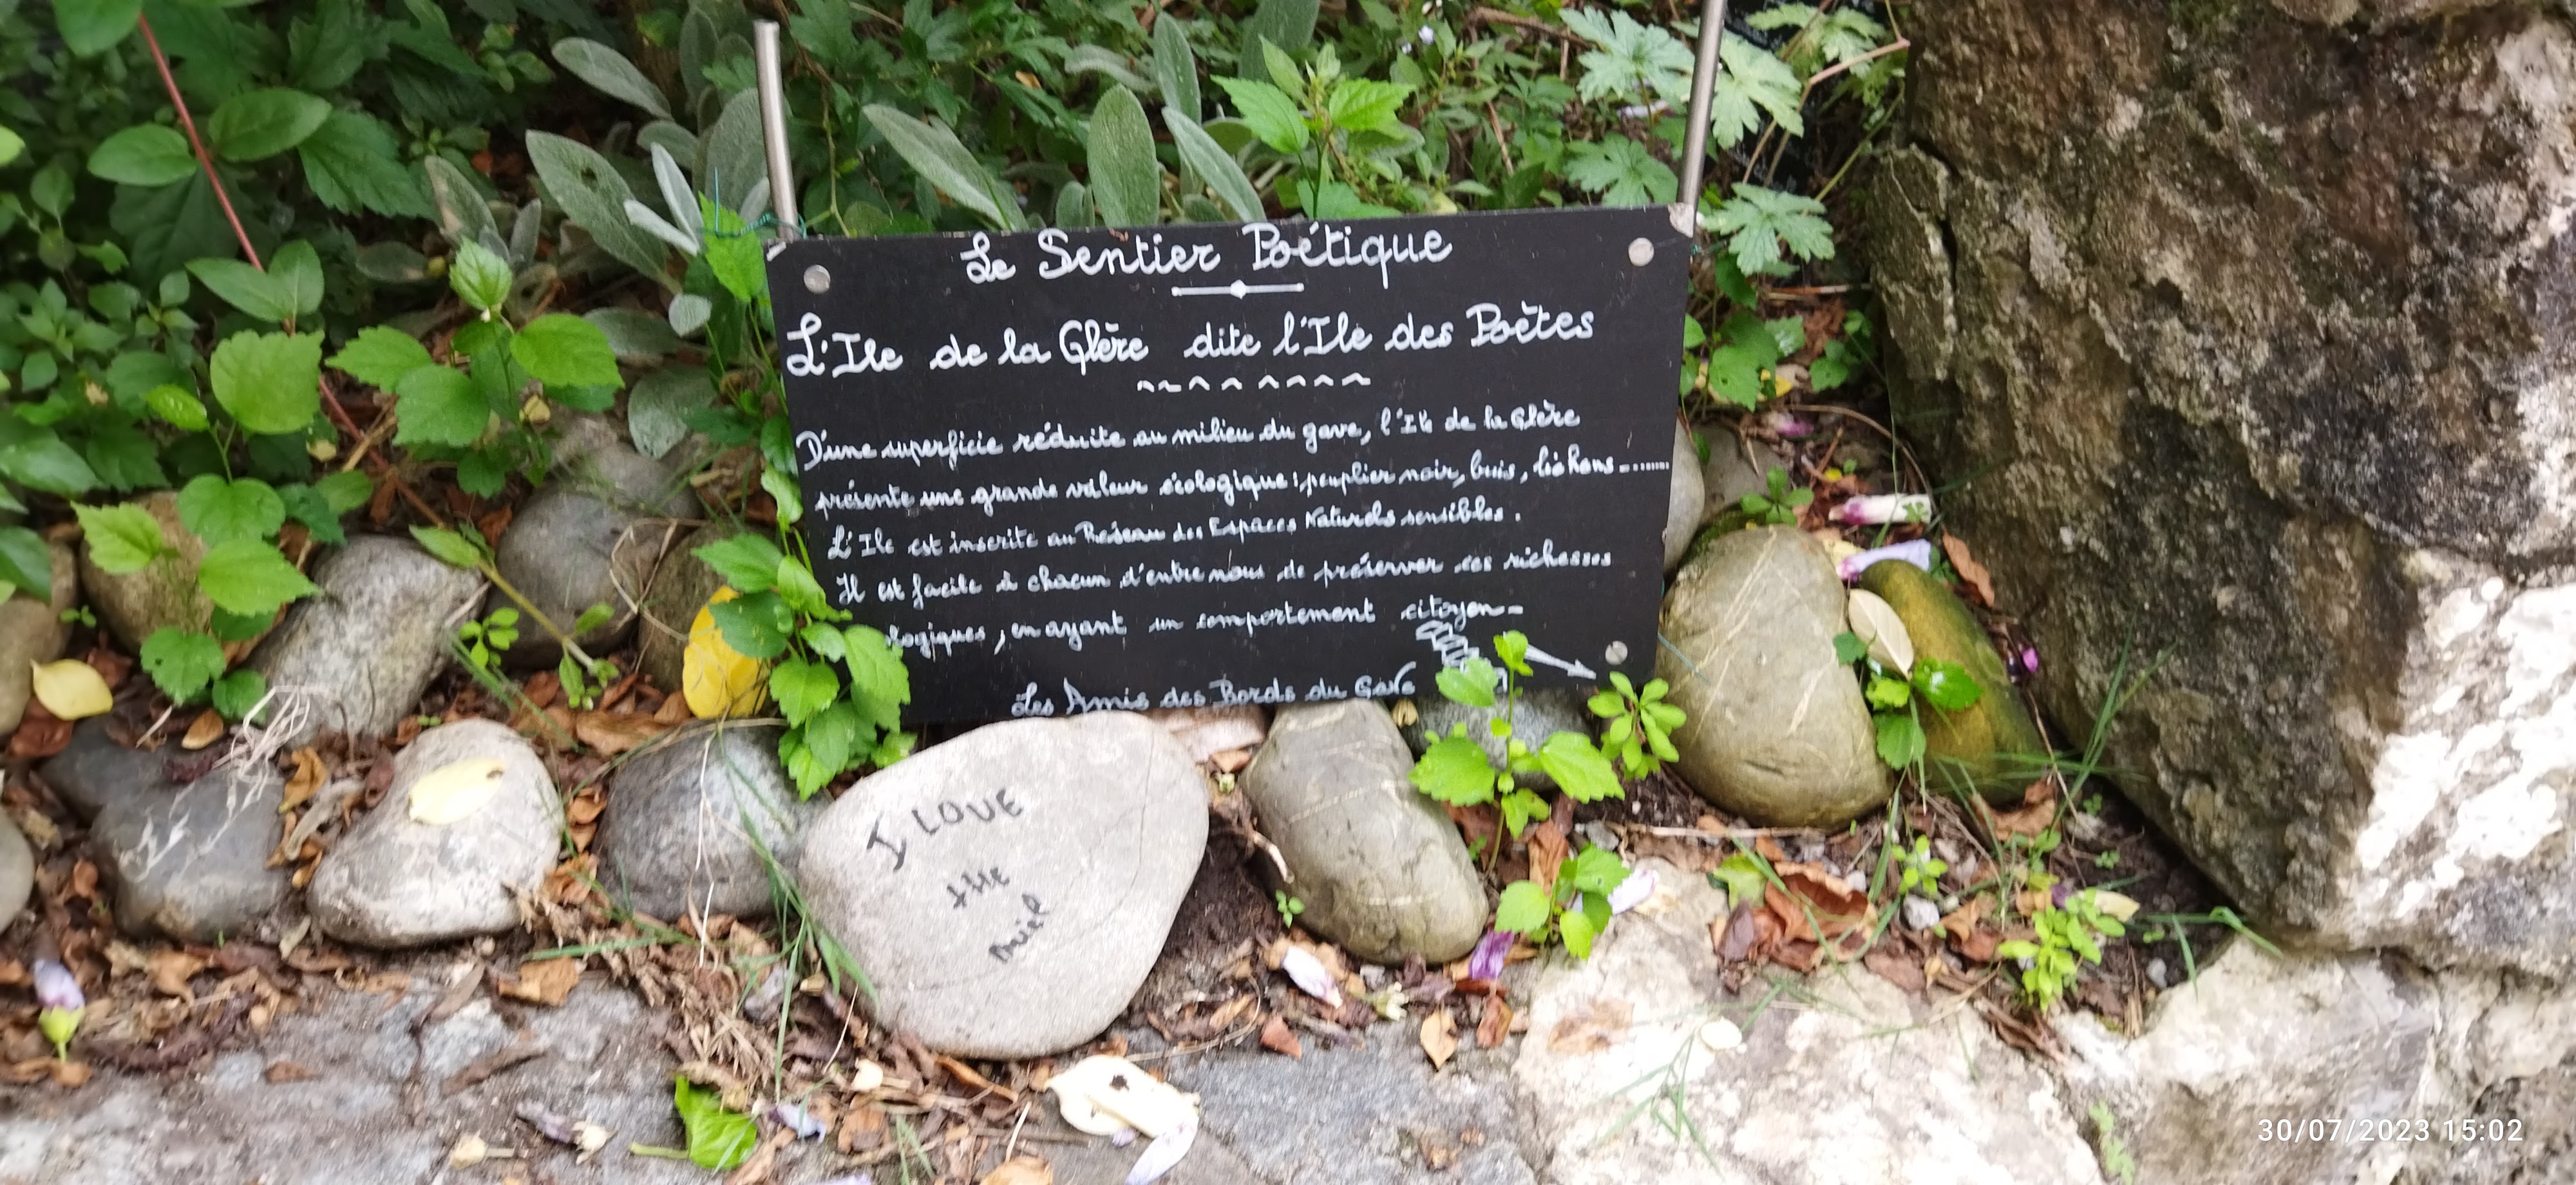 Le Sentier Poétique
L'Ile de la Glère dite l'Ile des Poètes
D'une superficie réduite au milieu du gave, l'Ile de la Glère
présente une grande valeur écologique : peuplier noir, buis, lichens ........
L'Ile est inscrite au Réseau des Espaces Naturels sensibles.
Il est facile à chacun d'entre nous de préserver ces richesses
logiques, en ayant un comportement citoyen
Les Amis des Bords du Gave
I LOVE
tHE
miel
30/07/2023 15:02